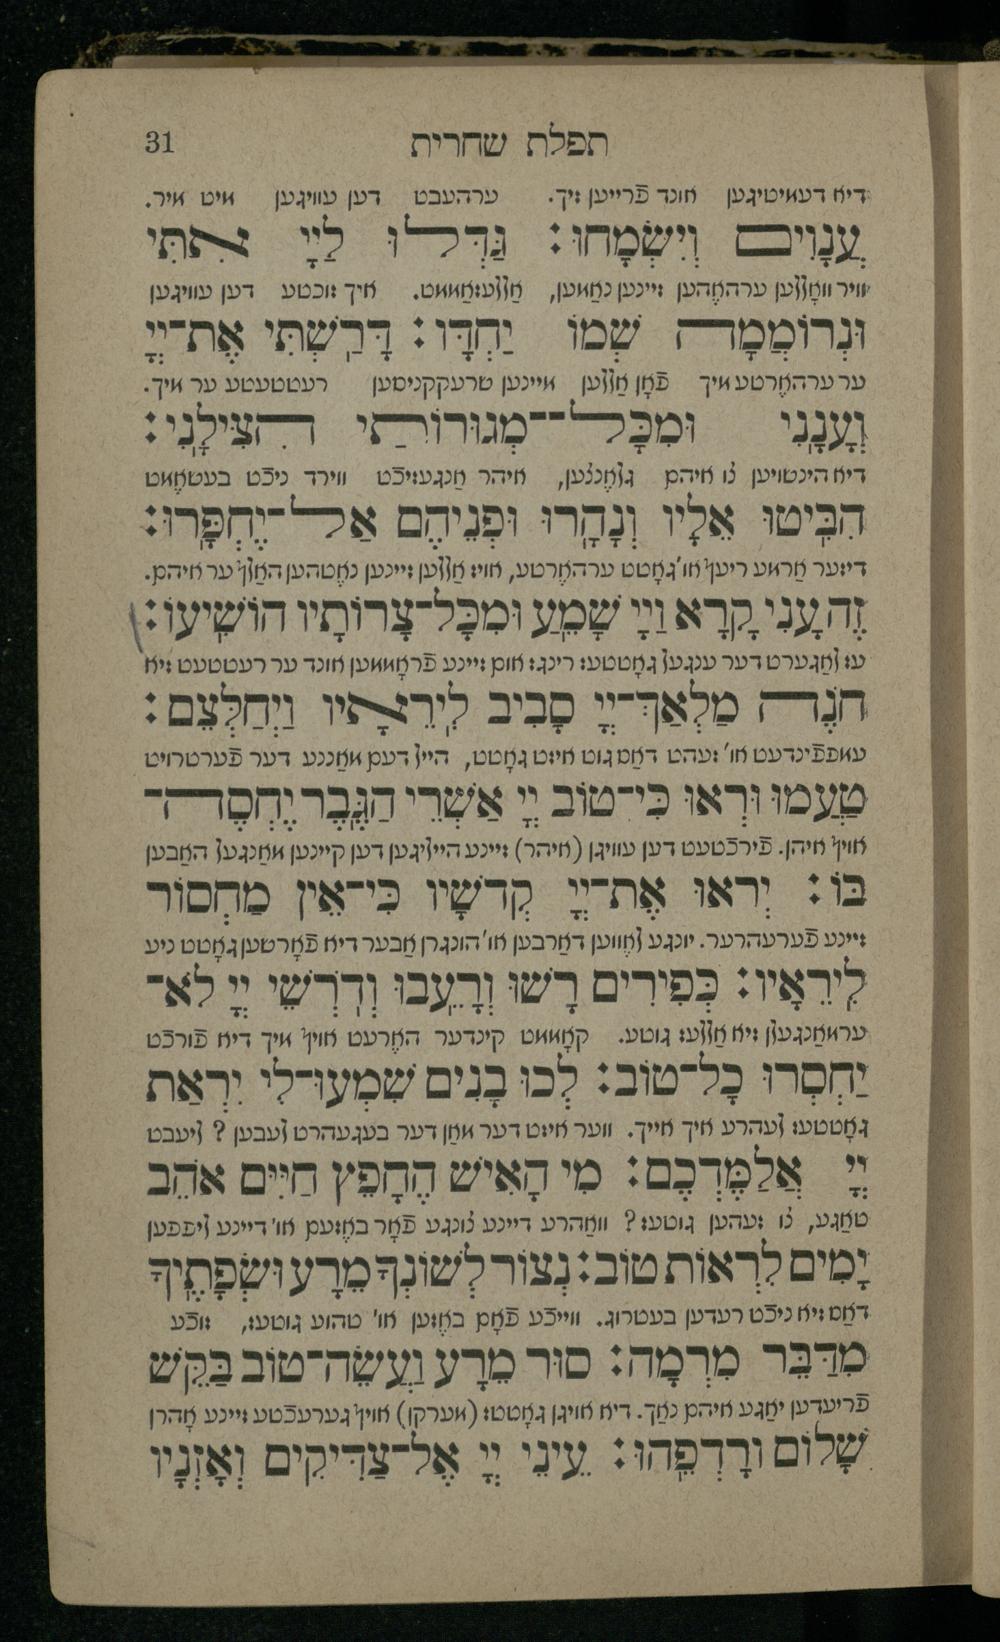 תפלת שחרית 31
דיא דעמיטיגען אונד פֿרייען זיך. ערהעבט דען עוויגען מיט מיר.
עֲנָוִים וְיִשְׂמָחוּ: גַּדְּלוּ לַיְיָ אִתִּי
וויר וואָללען ערהאֶהען זיינען נאמען, אַללעזאַממט. איך זוכטע דען עוויגען
וּנְרוֹמְמָה שְׁמוֹ יַחְדָּו: דָּרַשְׁתִּי אֶת־יְיָ
ער ערהאֶרטע מיך פֿאָן אַללען מיינען שרעקקניסען רעטטעטע ער מיך.
וְעָנָנִי וּמִכָּל־מְגוּרוֹתַי הִצִּילָנִי:
דיא הינשויען צו איהם גלאֶנצען, איהר אַנגעזיכֿט ווירד ניכֿט בעשאֶמט
הִבִּיטוּ אֵלָיו וְנָהָרוּ וּפְנֵיהֶם אַל־יֶחְפָּרוּ:
דיזער אַרמע ריעף או' גאָטט ערהאֶרטע, אויז אַללען זיינען נאֶטהען האַלף ער איהם.
זֶה עָנִי קָרָא וַיְיָ שָׁמֵעַ וּמִכָּל־צָרוֹתָיו הוֹשִׁיעוֹ:
עז לאַגערט דער ענגעל גאָטטעז רינגז אום זיינע פֿראָממען אונד ער רעטטעט זיא
חֹנֶה מַלְאַךְ־יְיָ סָבִיב לִירֵאָיו וַיְחַלְּצֵם:
עמפפֿינדעט או' זעהט דאַס גוט איזט גאָטט, הייל דעם מאַננע דער פֿערטרויט
טַעֲמוּ וּרְאוּ כִּי־טוֹב יְיָ אַשְׁרֵי הַגֶּבֶר יֶחְסֶה־
אויף איהן. פֿירכֿטעט דען עוויגן (איהר) זיינע הייליגען דען קיינען מאַנגעל האַבען
בּוֹ: יְראוּ אֶת־יְיָ קְדֹשָׁיו כִּי־אֵין מַחְסוֹר
זיינע פֿערעהרער. יונגע לאֶווען דאַרבען או' הונגרן אַבער דיא פֿאָרשען גאָטט ניע
לִירֵאָיו: כְּפִירִים רָשׁוּ וְרָעֵבוּ וְדֹרְשֵׁי יְיָ לֹא־
ערמאַנגעלן זיא אַללעז גוטע. קאָממט קינדער האֶרעט אויף מיך דיא פֿורכֿט
יַחְסְרוּ כָל־טוֹב: לְכוּ בָנִים שִׁמְעוּ־לִי יִרְאַת
גאָטטעז לעהרע איך אייך. ווער איזט דער מאַן דער בעגעהרט לעבען ? ליעבט
יְיָ אֲלַמֶּדְכֶם: מִי הָאִישׁ הֶחָפֵץ חַיִּים אֹהֵב
טאַגע, צו זעהען גוטעז ? וואַהרע דיינע צונגע פֿאָר באֶזעם או' דיינע ליפפען
יָמִים לִרְאוֹת טוֹב: נְצוֹר לְשׁוֹנְךָ מֵרָע וּשְׂפָתֶיךָ
דאַס זיא ניכֿט רעדען בעטרוג. ווייכֿע פֿאָם באֶזען או' טהוע גוטעז, זוכֿע
מִדַּבֵּר מִרְמָה: סוּר מֵרָע וַעֲשֵׂה־טוֹב בַּקֵּשׁ
פֿריעדען יאַגע איהם נאַך. דיא אויגן גאָטטז (מערקן) אויף גערעכֿטע זיינע אָהרן
שָׁלוֹם וְרָדְפֵהוּ: עֵינֵי יְיָ אֶל־צַדִּיקִים וְאָזְנָיו